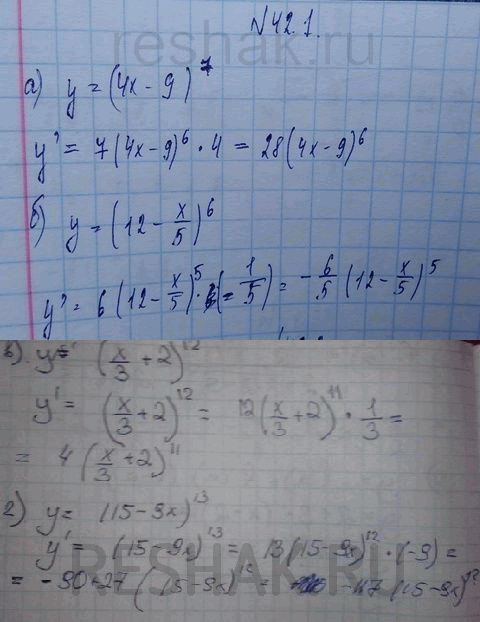 №42.1.
reshak.ru
а) y = (4x - 9)^7
y' = 7(4x - 9)^6 · 4 = 28(4x - 9)^6
б) y = (12 - x/5)^6
y' = 6(12 - x/5)^5 · (-1/5) = -6/5 (12 - x/5)^5
в) y = (x/3 + 2)^12
y' = (x/3 + 2)^12 = 12(x/3 + 2)^11 · 1/3 =
= 4(x/3 + 2)^11
г) y = (15 - 9x)^13
y' = (15 - 9x)^13 = 13(15 - 9x)^12 · (-9) =
RESHAK.RU
= -90-27(15 - 9x)^12 = -117(15-9x)^12